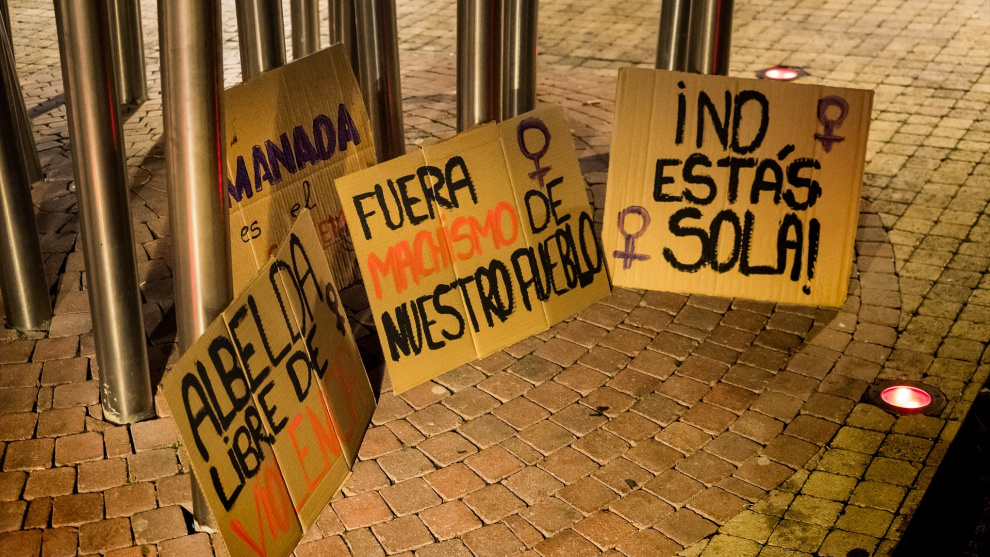 MANADA
es el
FUERA
MACHISMO DE
NUESTRO PUEBLO
¡NO
ESTÁS
SOLA!
ALBELDA
LIBRE DE